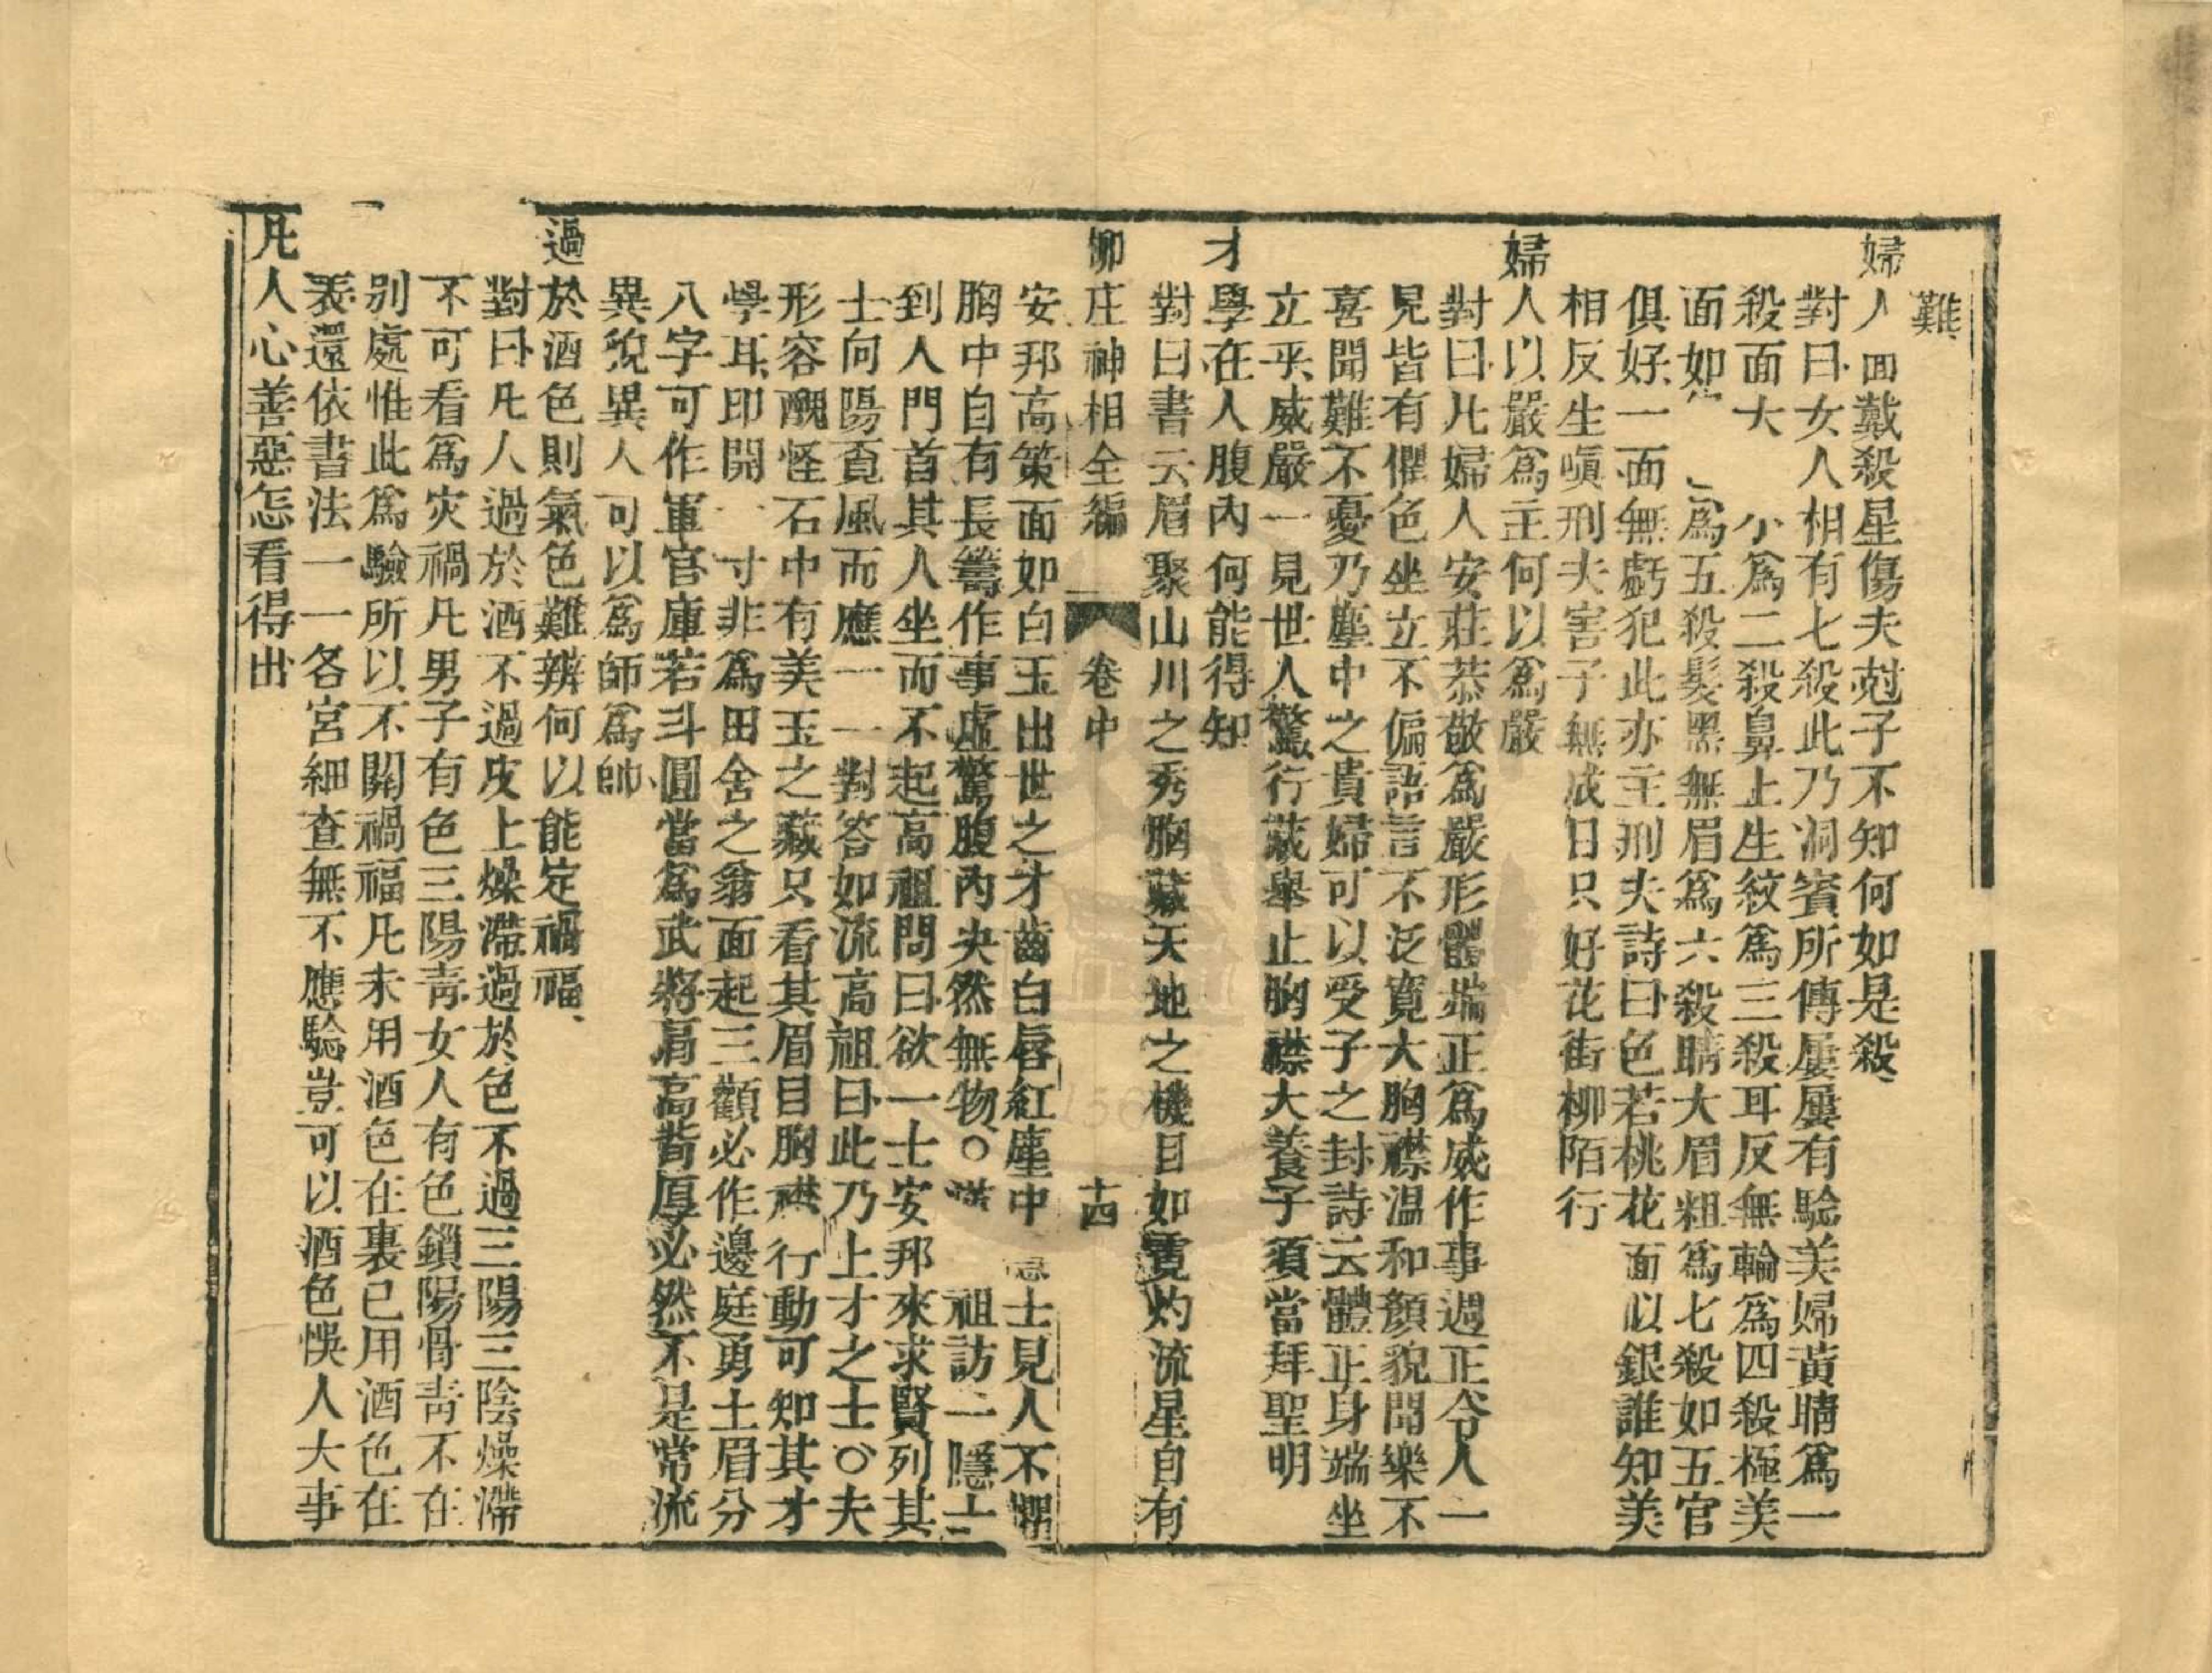 難
婦人面戴殺星傷夫尅子不知何如是殺
對曰女人相有七殺此乃洞賓所傳屢屢有驗美婦黃睛爲一
殺面大 小爲二殺鼻上生紋爲三殺耳反無輪爲四殺極美
面如 爲五殺髮黑無眉爲六殺睛大眉粗爲七殺如五官
俱好一面無虧犯此亦主刑夫詩曰色若桃花面似銀誰知美
相反生嗔刑夫害子無成日只好花街柳陌行
婦人以嚴爲主何以爲嚴
對曰凡婦人安莊恭敬爲嚴形體端正爲威作事週正令人一
見皆有懼色坐立不偏語言不泛寬大胸襟溫和顏貌聞樂不
喜聞難不憂乃塵中之貴婦可以受子之封詩云體正身端坐
立乎威嚴一見世人驚行藏舉止胸襟大養子須當拜聖明
才學在人腹內何能得知
對曰書云眉聚山川之秀胸藏天地之機目如電灼流星自有
柳庄神相全編 卷中 十四
安邦高策面如白玉出世之才齒白唇紅塵中 士見人不懼
胸中自有長籌作事虛驚腹內央然無物○ 祖訪二隱士
到人門首其人坐而不起高祖問曰欲一士安邦來求賢列其
士向陽覔風而應一一對答如流高祖曰此乃上才之士○夫
形容醜怪石中有美玉之藏只看其眉目胸襟行動可知其才
學耳印開一寸非爲田舍之翁面起三顴必作邊庭勇士眉分
八字可作軍官庫若斗圓當爲武將肩高背厚必然不是常流
異貌異人可以爲師爲帥
過於酒色則氣色難辨何以能定禍福
對曰凡人過於酒不過皮上燥滯過於色不過三陽三陰燥滯
不可看爲灾禍凡男子有色三陽青女人有色鎖陽骨青不在
別處惟此爲驗所以不開禍福凡未用酒色在裏已用酒色在
表還依書法一一各宮細查無不應驗豈可以酒色悞人大事
凡人心善惡怎看得出